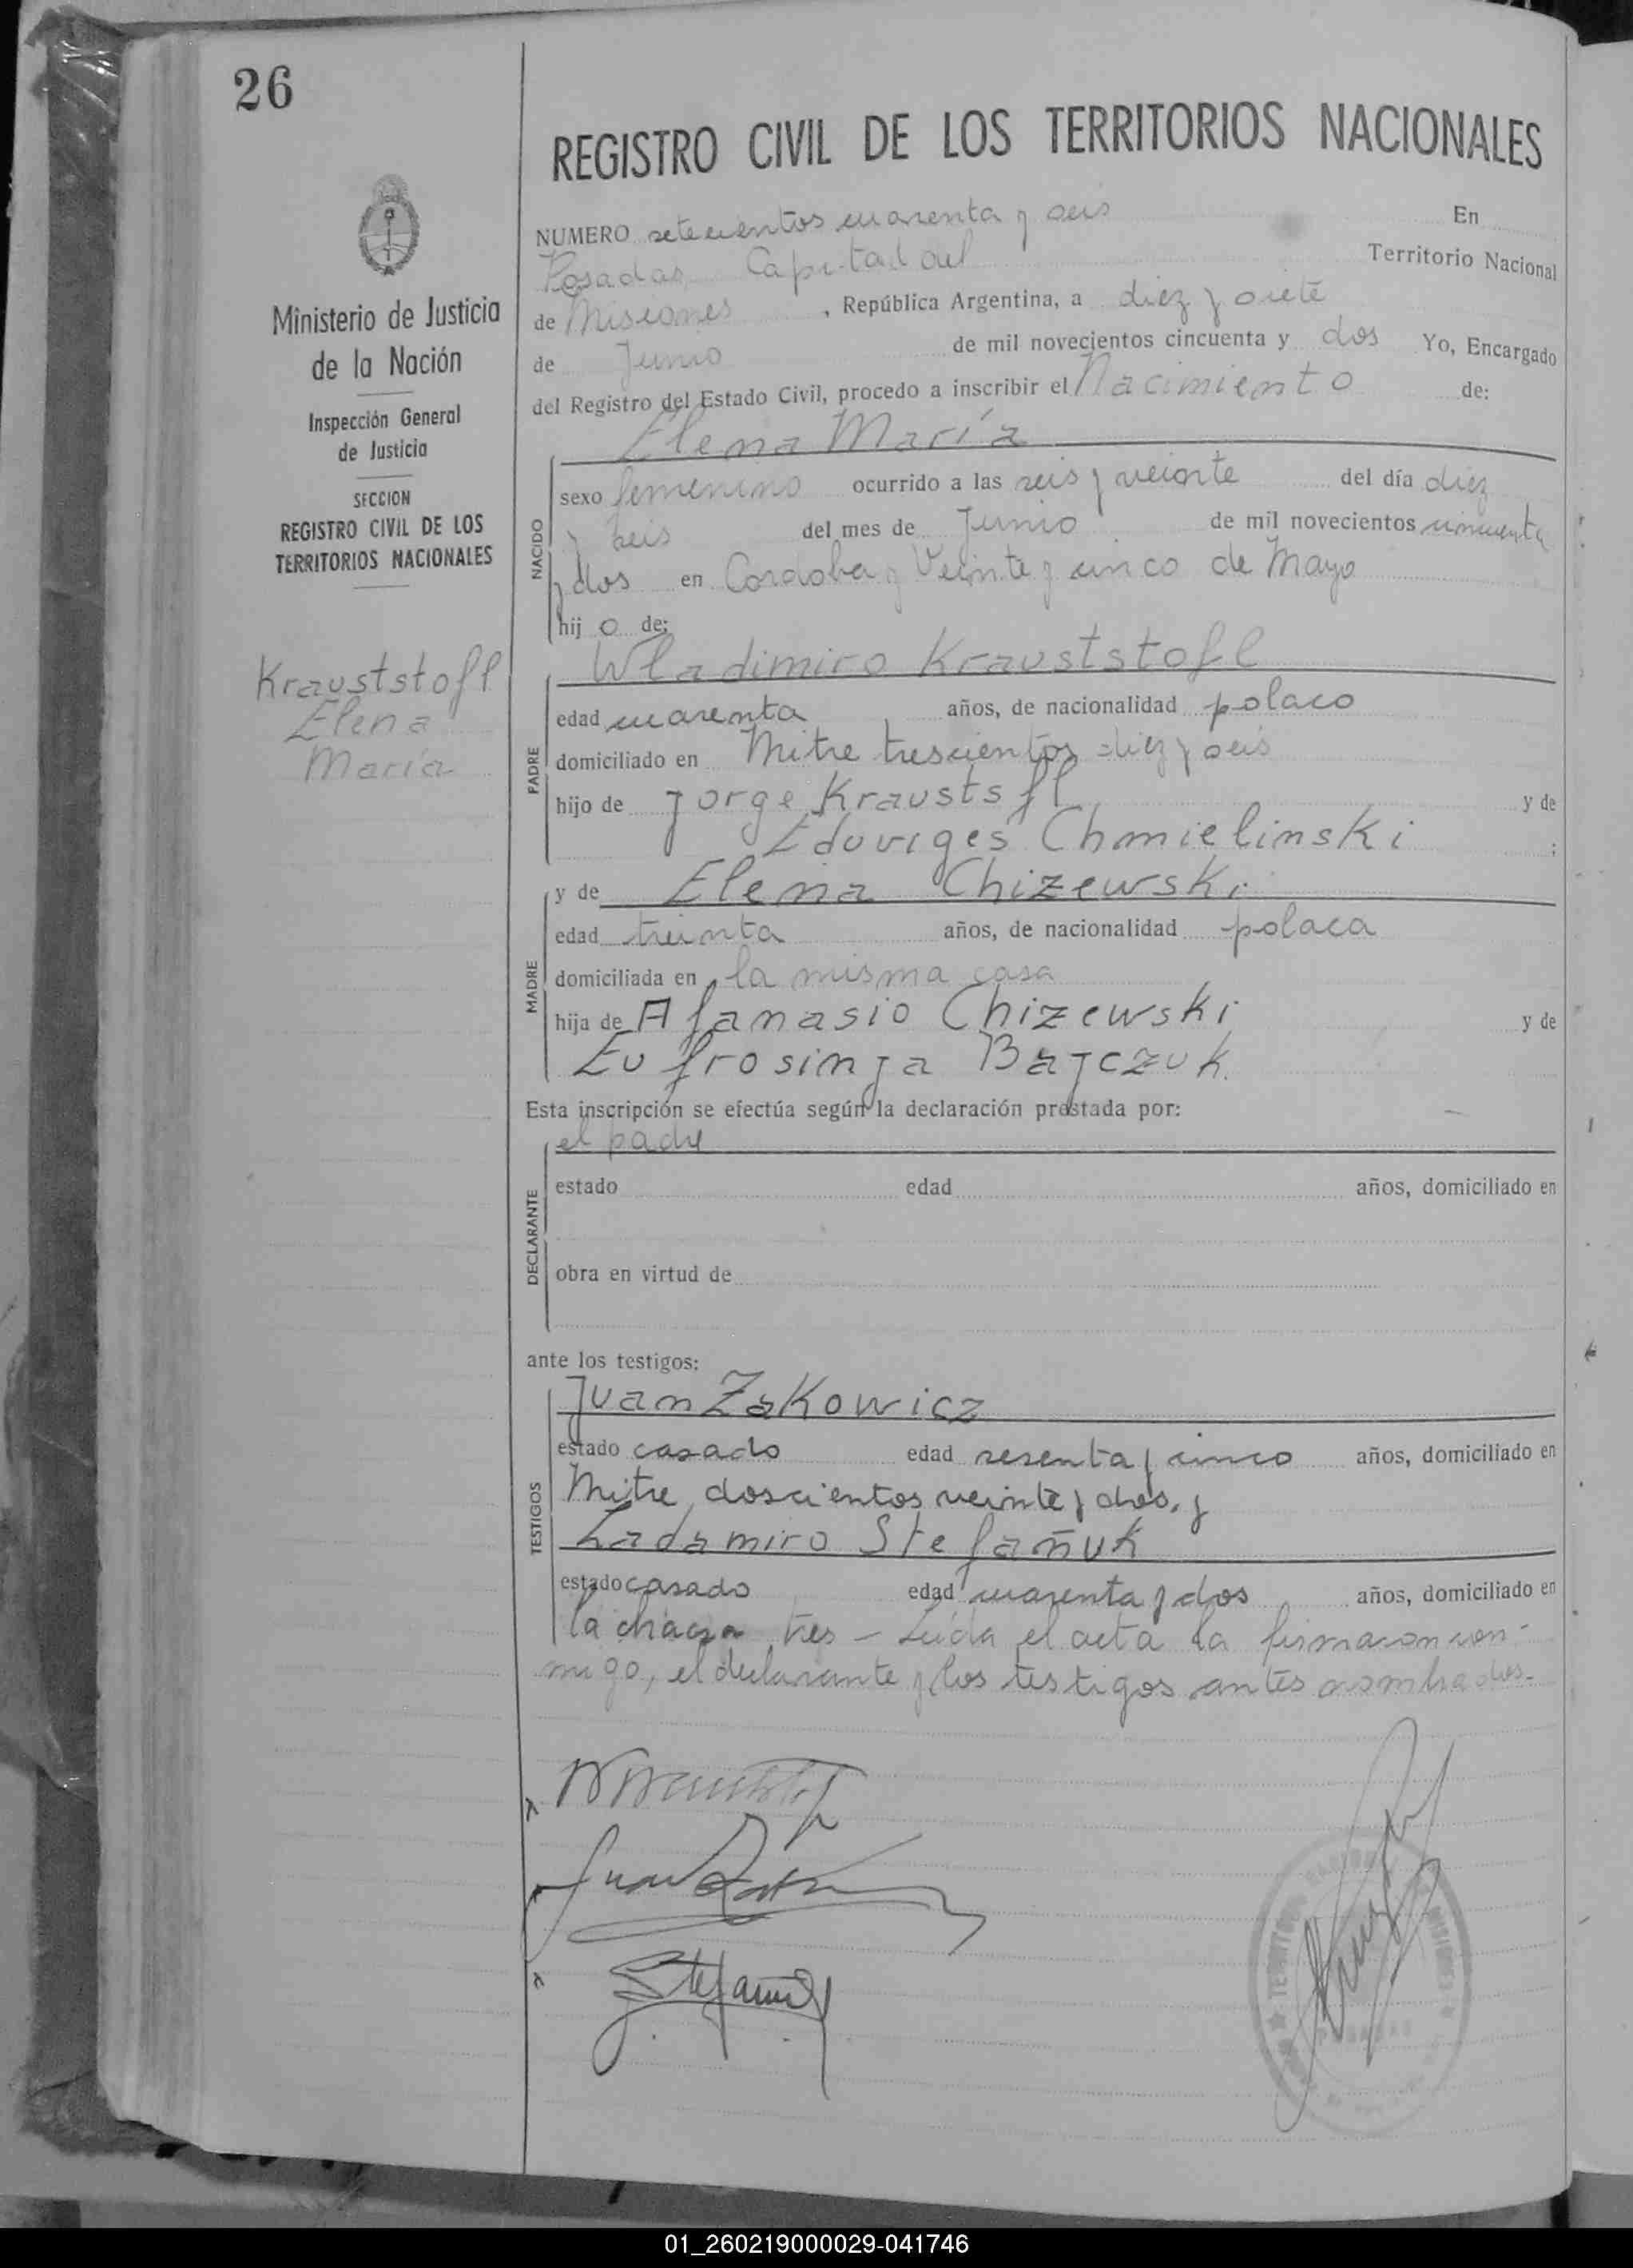 26
REGISTRO CIVIL DE LOS TERRITORIOS NACIONALES
Ministerio de Justicia
de la Nación
Inspección General
de Justicia
SECCION
REGISTRO CIVIL DE LOS
TERRITORIOS NACIONALES
Krauststofl
Elena
María
NUMERO setecientos cuarenta y seis En
Posadas Capital del Territorio Nacional
de Misiones, República Argentina, a diez y siete
de Junio de mil novecientos cincuenta y dos Yo, Encargado
del Registro del Estado Civil, procedo a inscribir el Nacimiento de:
Elena María
NACIDO
sexo femenino ocurrido a las seis y veinte del día diez
y seis del mes de Junio de mil novecientos cincuenta
y dos en Cordoba y Veinte y cinco de Mayo
hij o de:
Wladimiro Krauststofl
PADRE
edad cuarenta años, de nacionalidad polaco
domiciliado en Mitre trescientos diez y seis
hijo de Jorge Kraustsfl y de
Eduviges Chmielinski ;
MADRE
y de Elena Chizewski
edad treinta años, de nacionalidad polaca
domiciliada en la misma casa
hija de Afanasio Chizewski y de
Eufrosinja Bajczuk
Esta inscripción se efectúa según la declaración prestada por:
el padre
DECLARANTE
estado edad años, domiciliado en
obra en virtud de
ante los testigos:
Juan Zakowicz
TESTIGOS
estado casado edad sesenta y cinco años, domiciliado en
Mitre doscientos veinte y dos, y
Ladamiro Stefañuk
estado casado edad cuarenta y dos años, domiciliado en
la chacra tres – Leída el acta la firmaron con-
migo, el declarante y los testigos antes nombrados.-
01_260219000029-041746